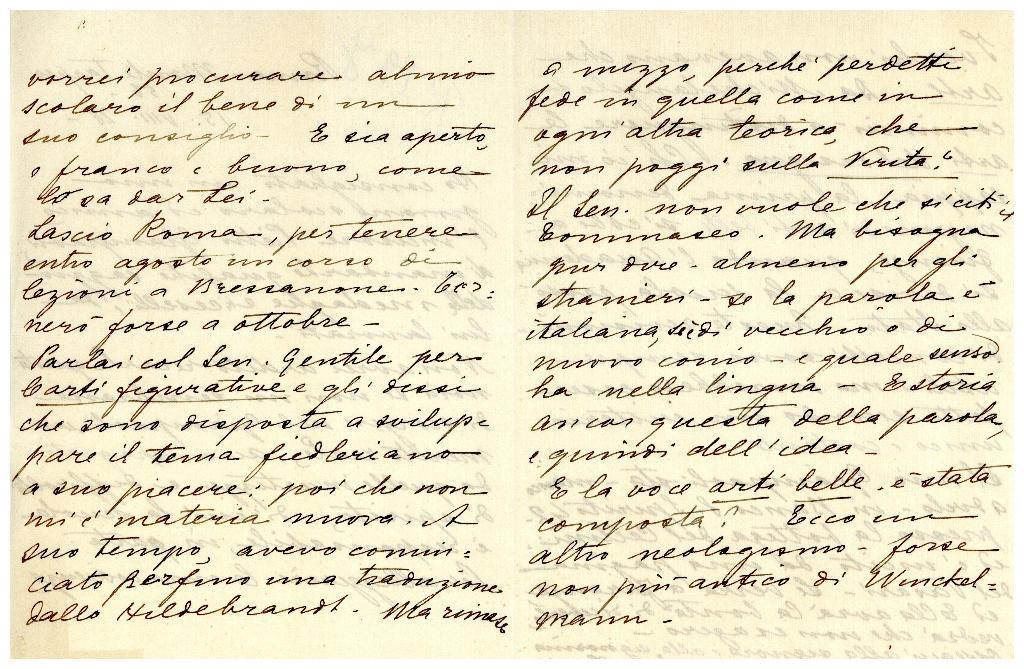 vorrei procurare al mio
scolaro il bene di un
suo consiglio – E sia aperto,
e franco e buono, come
lo sa dar Lei –
Lascio Roma, per tenere
entro agosto un corso di
lezioni a Bressanone. Tor=
nerò forse a ottobre –
Parlai col Sen. Gentile per
l'arti figurative e gli dissi
che sono disposta a svilup=
pare il tema fiedleriano
a suo piacere; poi che non
mi è materia nuova. A
suo tempo, avevo comin=
ciato perfino una traduzione
dallo Hildebrandt. Ma rimase
a mezzo, perché perdetti
fede in quella come in
ogni altra teorica, che
non poggi sulla Verità.
Il Sen. non vuole che si citi
Tommaseo. Ma bisogna
pur dire – almeno per gli
stranieri – se la parola è
italiana, se di vecchio o di
nuovo conio – e quale senso
ha nella lingua – E storia
ancor questa della parola,
e quindi dell'idea –
E la voce arti belle, è stata
composta? Ecco un
altro neologismo – forse
non più antico di Winckel=
mann –